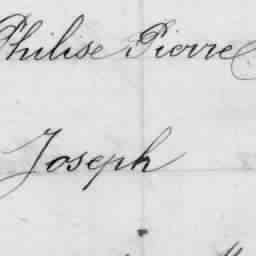 Philise Pierre
Joseph